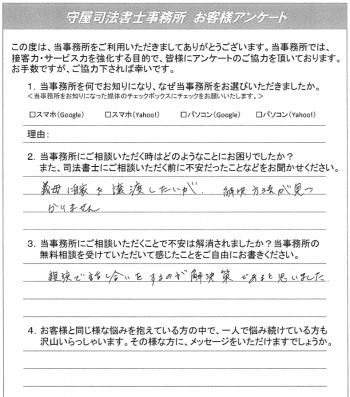 守屋司法書士事務所 お客様アンケート
この度は、当事務所をご利用いただきましてありがとうございます。当事務所では、
接客力・サービス力を強化する目的で、皆様にアンケートのご協力を頂いております。
お手数ですが、ご協力下されば幸いです。
1. 当事務所を何でお知りになり、なぜ当事務所をお選びいただきましたか。
<当事務所をお知りになった媒体のチェックボックスにチェックをお願いします。>
□スマホ(Google) □スマホ(Yahoo!) □パソコン(Google) □パソコン(Yahoo!)
理由:
2. 当事務所にご相談いただく時はどのようなことにお困りでしたか?
また、司法書士にご相談いただく前に不安だったことなどをお聞かせください。
義母に家を譲渡したいが、解決方法が見つ
かりません
3. 当事務所にご相談いただくことで不安は解消されましたか?当事務所の
無料相談を受けていただいて感じたことをご自由にお書きください。
親族で話し合いをするのが解決策であると思いました
4. お客様と同じ様な悩みを抱えている方の中で、一人で悩み続けている方も
沢山いらっしゃいます。その様な方に、メッセージをいただけますでしょうか。